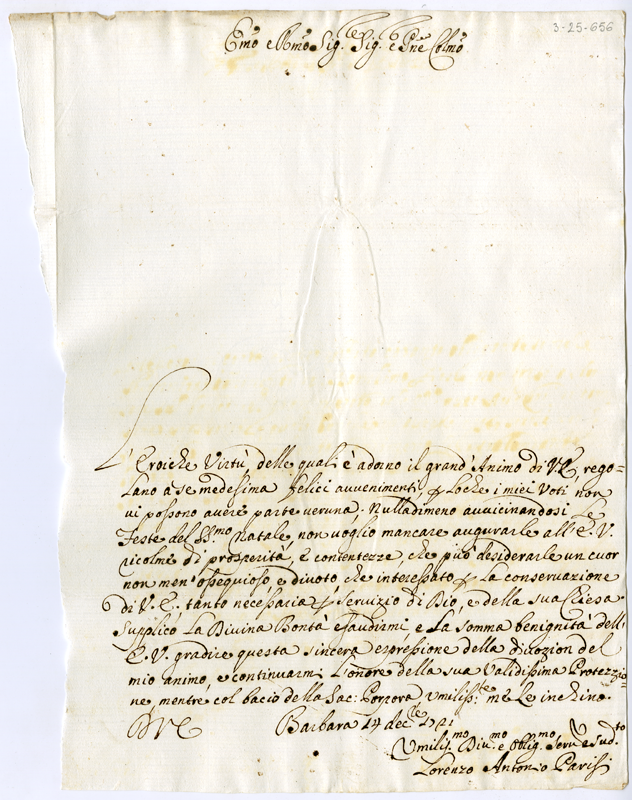 3-25-656
Emo e Rmo Sig.re Sig.e e Pne Colmo
L'Eroiche Virtù, delle quali è adorno il grand'Animo di V.E, rego=
lano a se medesima felici avvenimenti, p loche i miei Voti non
vi possono avere parte veruna. Nulladimeno avvicinandosi Le
Feste del SSmo Natale, non voglio mancare augurarle all'E.V.
ricolme di prosperità, e contentezze, che può desiderarle un cuor
non men' ossequioso, e divoto che interessato p La conservazione
di V.E. tanto necessaria p servizio di Dio, e della sua Chiesa.
Supplico La Divina Bontà esaudirmi e La somma benignità dell'
E.V. gradire questa sincera espressione della divozion del
mio animo, e continuarmi L'onore della sua Validissima Protezzio=
ne, mentre col bacio della Sac: Porpora umiliss:te me Le inchino.
DVE Barbara 14 dec.re
Umilis.mo Div.mo e Oblig.mo Serv.e e Sud.to
Lorenzo Antonio Parisi